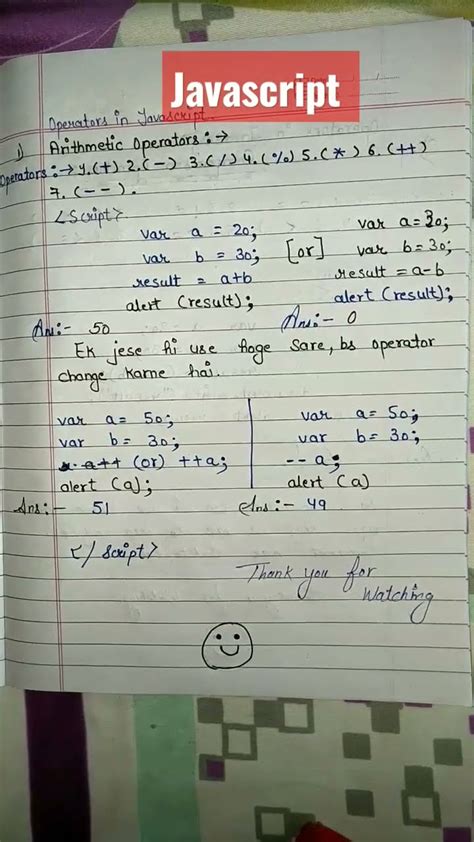 Javascript
Operators in Javascript
1) Arithmetic Operators :→
Operators :→ 1.(+) 2.(-) 3.(/) 4.(%) 5.(*) 6.(++)
7.(--).
<Script>
var a = 20;
var b = 30;
result = a+b
alert (result);
Ans:- 50
[or]
var a=30;
var b=30;
result = a-b
alert (result);
Ans:- 0
Ek jese hi use hoge sare, bs operator
change karne hai.
var a= 50;
var b= 30;
a++ (or) ++a;
alert (a);
Ans:- 51
var a= 50;
var b= 30;
-- a;
alert (a)
Ans:- 49
</ Script>
Thank you for
Watching